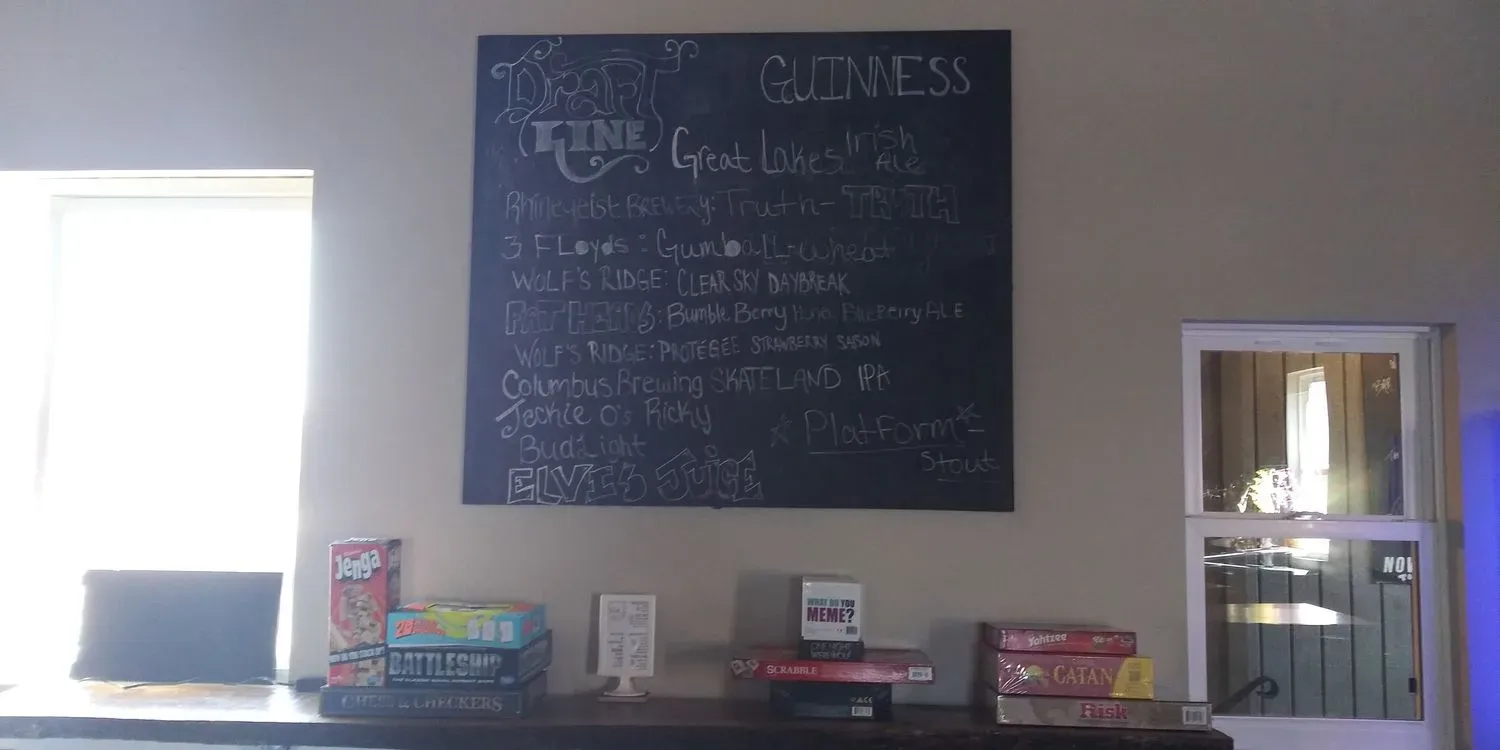 Draft
LINE
GUINNESS
Great Lakes: Irish Ale
Rhinegeist BREWERY: Truth - TRUTH
3 FLoyds: GumbaLL - wheat
WOLF'S RIDGE: CLEAR SKY DAYBREAK
FAT HEADS: Bumble Berry BlueBerry ALE
WOLF'S RIDGE: PROTÉGÉE STRAWBERRY SAISON
Columbus Brewing SKATELAND IPA
Jackie O's Ricky
Bud Light
ELVES JUICE
PlatForm -
Stout
Jenga
BATTLESHIP
CHESS & CHECKERS
WHAT DO YOU
MEME?
ONE NIGHT
WEREWOLF
SCRABBLE
Yahtzee
CATAN
Risk
NOW